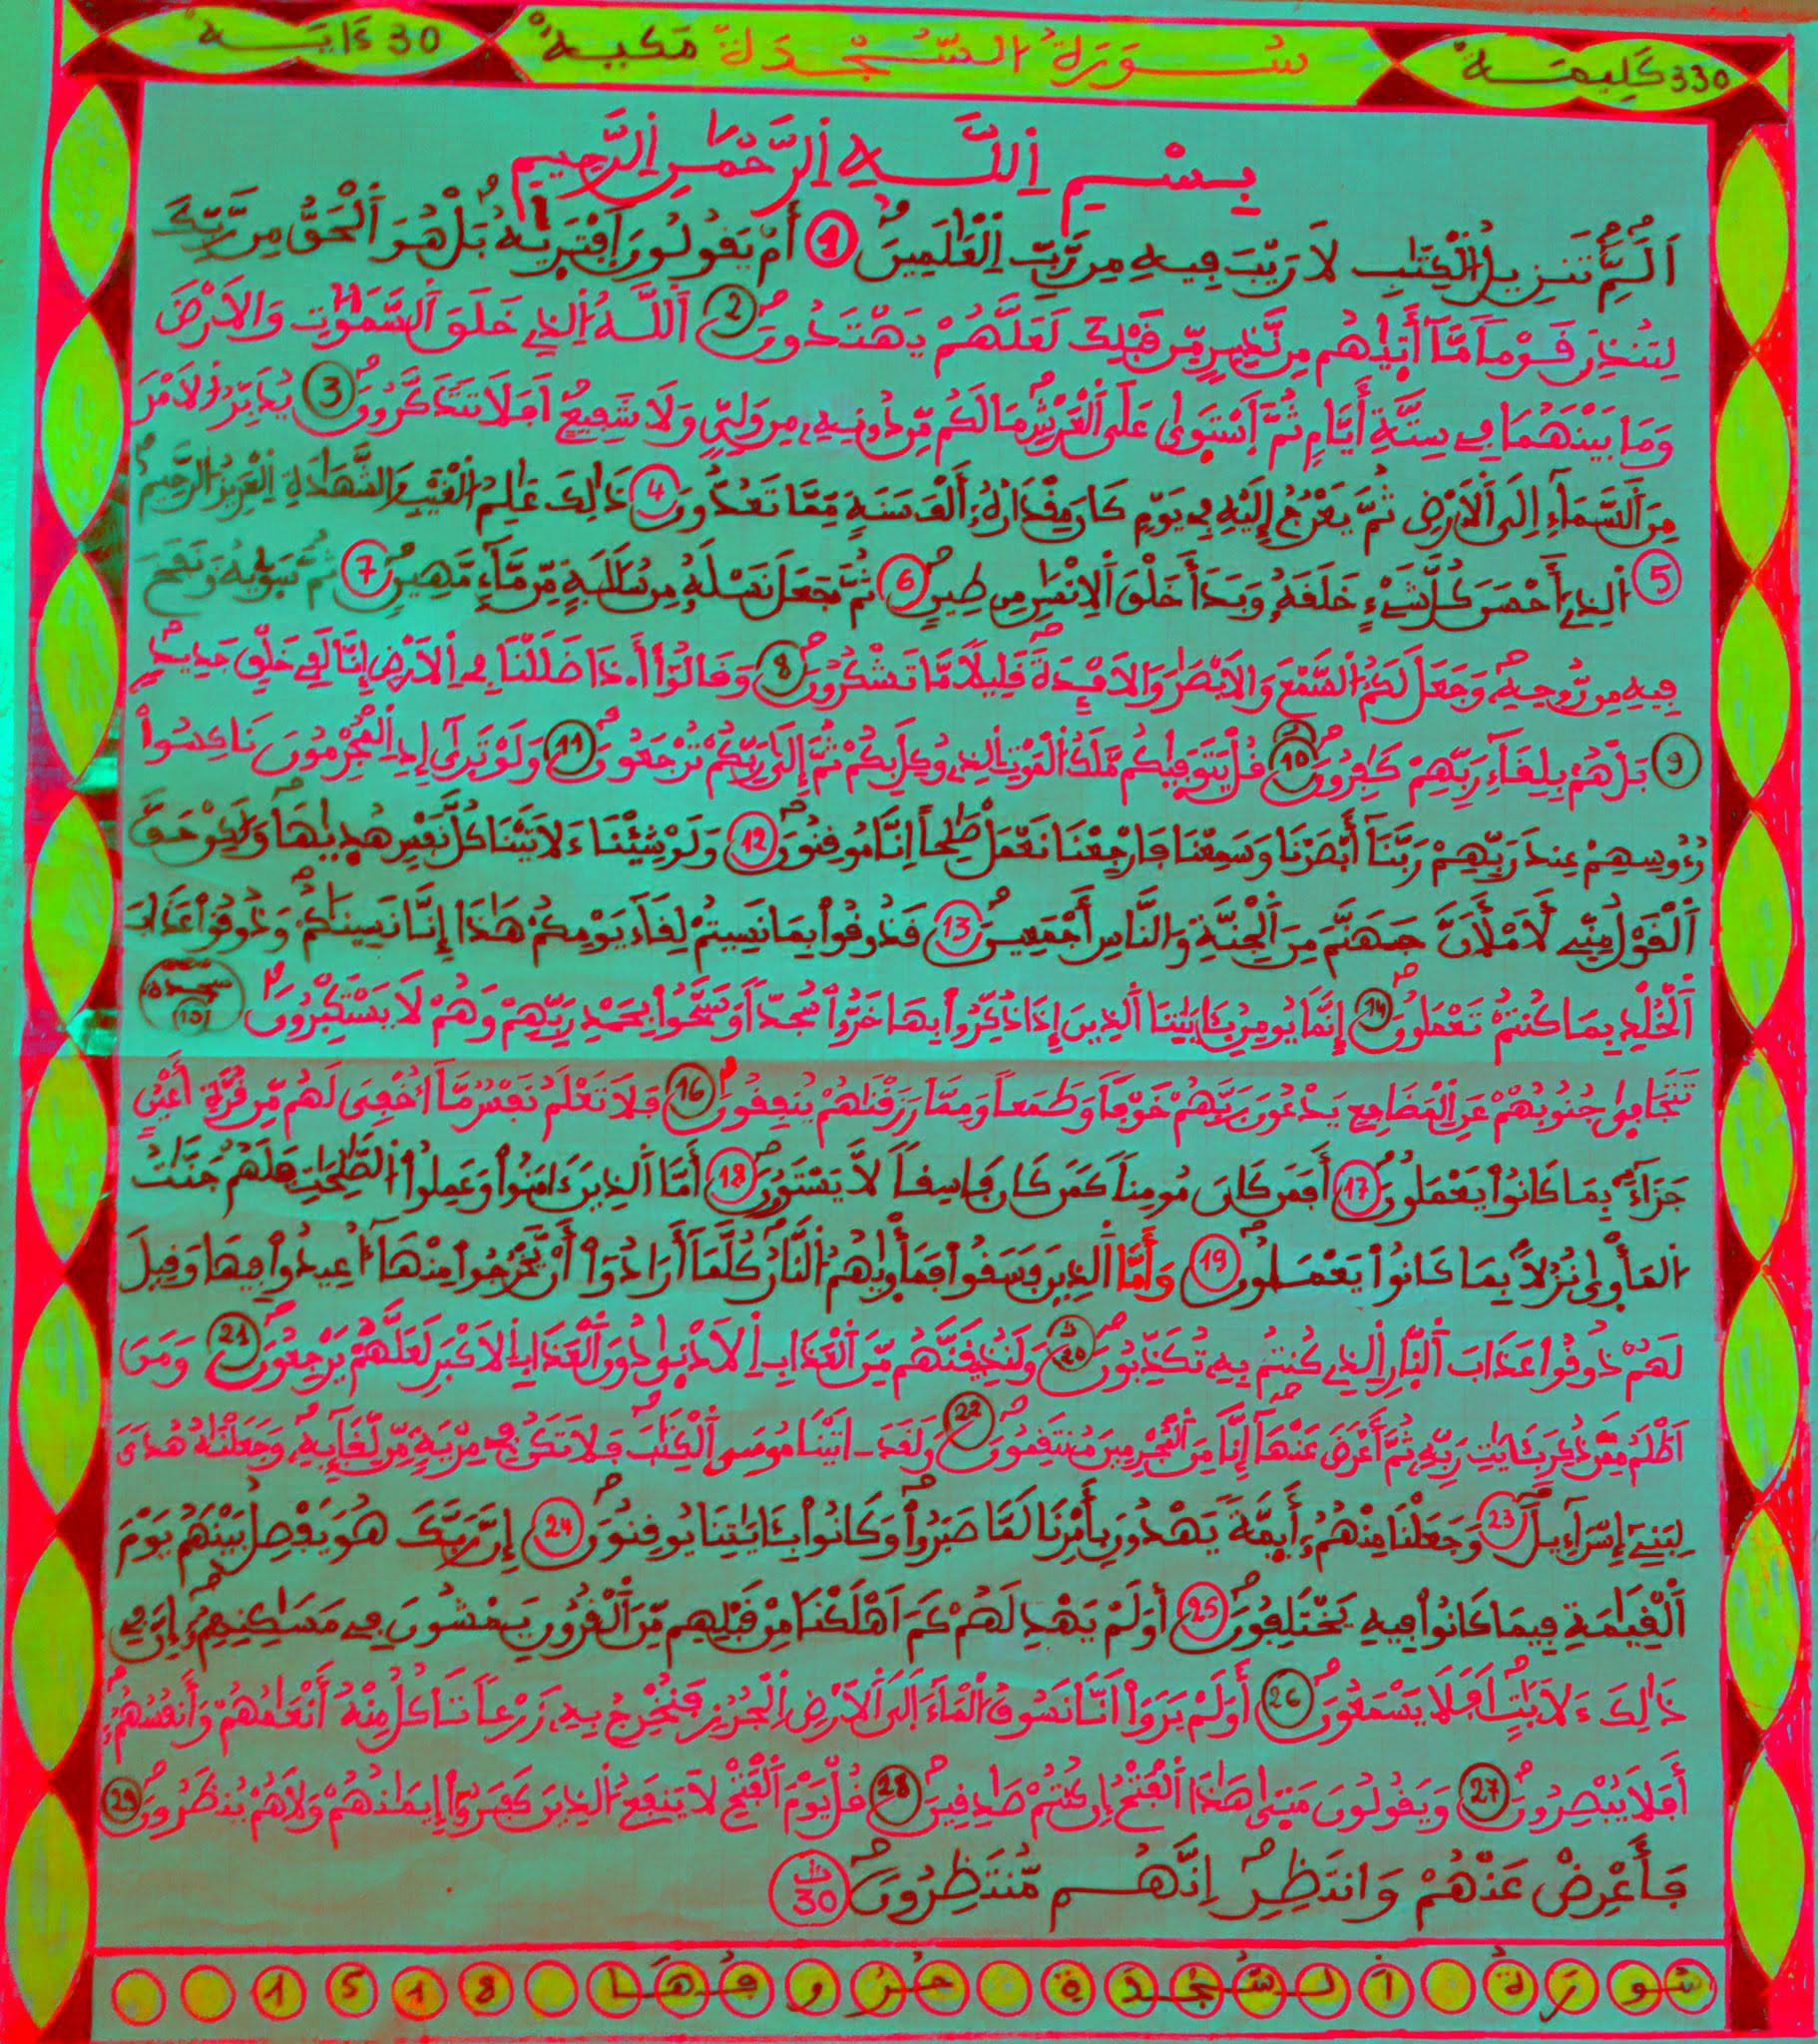 330 كَلِيمَــة سُــورَةُ السَّــجْــدَة مَكِّيَة 30 ءَايَــة
بِسْمِ اِللَّهِ اِلرَّحْمَٰنِ اِلرَّحِيمِ
أَلَٓمِّٓ تَنزِيلُ اُلْكِتَٰبِ لَا رَيْبَ فِيهِ مِن رَّبِّ اِلْعَٰلَمِينَ 1 أَمْ يَقُولُونَ اَفْتَرَيٰهُ بَلْ هُوَ اَلْحَقُّ مِن رَّبِّكَ
لِتُنذِرَ قَوْماً مَّآ أَتَيٰهُم مِّن نَّذِيرٍ مِّن قَبْلِكَ لَعَلَّهُمْ يَهْتَدُونَ 2 اَللَّهُ اُلذِے خَلَقَ اَلسَّمَٰوَٰتِ وَالَارْضَ
وَمَا بَيْنَهُمَا فِے سِتَّةِ أَيَّامٍ ثُمَّ اَسْتَوَىٰ عَلَى اَلْعَرْشِ مَا لَكُم مِّن دُونِهِۦ مِنْ وَلِيٍّ وَلَا شَفِيعٍ اَفَلَا تَتَذَكَّرُونَ 3 يُدَبِّرُ اُلَامْرَ
مِنَ اَلسَّمَآءِ اِلَى اَلَارْضِ ثُمَّ يَعْرُجُ إِلَيْهِ فِے يَوْمٍ كَانَ مِقْدَارُهُۥٓ أَلْفَ سَنَةٍ مِّمَّا تَعُدُّونَ 4 ذَٰلِكَ عَٰلِمُ اُلْغَيْبِ وَالشَّهَٰدَةِ اِلْعَزِيزُ اُلرَّحِيمُ
5 اُلذِےٓ أَحْسَنَ كُلَّ شَےْءٍ خَلَقَهُۥ وَبَدَأَ خَلْقَ اَلِانسَٰنِ مِن طِينٍ 6 ثُمَّ جَعَلَ نَسْلَهُۥ مِن سُلَٰلَةٍ مِّن مَّآءٍ مَّهِينٍ 7 ثُمَّ سَوَّيٰهُ وَنَفَخَ
فِيهِ مِن رُّوحِهِۦ وَجَعَلَ لَكُمُ اُلسَّمْعَ وَالَابْصَٰرَ وَالَافْـِٔدَةَ قَلِيلاً مَّا تَشْكُرُونَ 8 وَقَالُوٓاْ أَ.ذَا ضَلَلْنَا فِے اِلَارْضِ إِنَّا لَفِے خَلْقٍ جَدِيدٍ
9 بَلْ هُم بِلِقَآءِ رَبِّهِمْ كَٰفِرُونَ 10 قُلْ يَتَوَفَّيٰكُم مَّلَكُ اُلْمَوْتِ اِلذِے وُكِّلَ بِكُمْ ثُمَّ إِلَىٰ رَبِّكُمْ تُرْجَعُونَ 11 وَلَوْ تَرَىٰٓ إِذِ اِلْمُجْرِمُونَ نَاكِسُواْ
رُءُوسِهِمْ عِندَ رَبِّهِمْ رَبَّنَآ أَبْصَرْنَا وَسَمِعْنَا فَارْجِعْنَا نَعْمَلْ صَٰلِحاً اِنَّا مُوقِنُونَ 12 وَلَوْ شِئْنَا ءَلَاتَيْنَا كُلَّ نَفْسٍ هُدَيٰهَا وَلَٰكِنْ حَقَّ
اَلْقَوْلُ مِنِّے لَأَمْلَأَنَّ جَهَنَّمَ مِنَ اَلْجِنَّةِ وَالنَّاسِ أَجْمَعِينَ 13 فَذُوقُواْ بِمَا نَسِيتُمْ لِقَآءَ يَوْمِكُمْ هَٰذَآ إِنَّا نَسِينَٰكُمْ وَذُوقُواْ عَذَابَ
اَلْخُلْدِ بِمَا كُنتُمْ تَعْمَلُونَ 14 إِنَّمَا يُومِنُ بِـَٔايَٰتِنَا اَلذِينَ إِذَا ذُكِّرُواْ بِهَا خَرُّواْ سُجَّداً وَسَبَّحُواْ بِحَمْدِ رَبِّهِمْ وَهُمْ لَا يَسْتَكْبِرُونَ سجدة (10)
تَتَجَافَىٰ جُنُوبُهُمْ عَنِ اِلْمَضَاجِعِ يَدْعُونَ رَبَّهُمْ خَوْفاً وَطَمَعاً وَمِمَّا رَزَقْنَٰهُمْ يُنفِقُونَ 16 فَلَا تَعْلَمُ نَفْسٌ مَّآ أُخْفِىَ لَهُم مِّن قُرَّةِ أَعْيُنٍ
جَزَآءً بِمَا كَانُواْ يَعْمَلُونَ 17 أَفَمَن كَانَ مُومِناً كَمَن كَانَ فَاسِقاً لَّا يَسْتَوُونَ 18 أَمَّا اَلذِينَ ءَامَنُواْ وَعَمِلُواْ اُلصَّٰلِحَٰتِ فَلَهُمْ جَنَّٰتُ
اُلْمَأْوَىٰ نُزُلاً بِمَا كَانُواْ يَعْمَلُونَ 19 وَأَمَّا اَلذِينَ فَسَقُواْ فَمَأْوَيٰهُمُ اُلنَّارُ كُلَّمَآ أَرَادُوٓاْ أَنْ يَّخْرُجُواْ مِنْهَآ أُعِيدُواْ فِيهَا وَقِيلَ
لَهُمْ ذُوقُواْ عَذَابَ اَلنَّارِ اِلذِے كُنتُم بِهِۦ تُكَذِّبُونَ 20 وَلَنُذِيقَنَّهُم مِّنَ اَلْعَذَابِ اِلَادْنَىٰ دُونَ اَلْعَذَابِ اِلَاكْبَرِ لَعَلَّهُمْ يَرْجِعُونَ 21 وَمَنَ
اَظْلَمُ مِمَّن ذُكِّرَ بِـَٔايَٰتِ رَبِّهِۦ ثُمَّ أَعْرَضَ عَنْهَآ إِنَّا مِنَ اَلْمُجْرِمِينَ مُنتَقِمُونَ 22 وَلَقَدَ ـ اتَيْنَا مُوسَى اَلْكِتَٰبَ فَلَا تَكُن فِے مِرْيَةٍ مِّن لِّقَآئِهِۦ وَجَعَلْنَٰهُ هُدىً
لِّبَنِےٓ إِسْرَآءِيلَ 23 وَجَعَلْنَا مِنْهُمُۥٓ أَيِمَّةً يَهْدُونَ بِأَمْرِنَا لَمَّا صَبَرُواْ وَكَانُواْ بِـَٔايَٰتِنَا يُوقِنُونَ 24 إِنَّ رَبَّكَ هُوَ يَفْصِلُ بَيْنَهُمْ يَوْمَ
اَلْقِيَٰمَةِ فِيمَا كَانُواْ فِيهِ يَخْتَلِفُونَ 25 أَوَلَمْ يَهْدِ لَهُمْ كَمَ اَهْلَكْنَا مِن قَبْلِهِم مِّنَ اَلْقُرُونِ يَمْشُونَ فِے مَسَٰكِنِهِمُۥٓ إِنَّ فِے
ذَٰلِكَ ءَلَايَٰتٍ اَفَلَا يَسْمَعُونَ 26 أَوَلَمْ يَرَوَاْ اَنَّا نَسُوقُ اُلْمَآءَ اِلَى اَلَارْضِ اِلْجُرُزِ فَنُخْرِجُ بِهِۦ زَرْعاً تَاكُلُ مِنْهُ أَنْعَٰمُهُمْ وَأَنفُسُهُمُۥٓ
أَفَلَا يُبْصِرُونَ 27 وَيَقُولُونَ مَتَىٰ هَٰذَا اَلْفَتْحُ إِن كُنتُمْ صَٰدِقِينَ 28 قُلْ يَوْمَ اَلْفَتْحِ لَا يَنفَعُ اُلذِينَ كَفَرُوٓاْ إِيمَٰنُهُمْ وَلَا هُمْ يُنظَرُونَ 29
فَأَعْرِضْ عَنْهُمْ وَانتَظِرِ اِنَّهُم مُّنتَظِرُونَ 30
سُورَةُ اَلسَّجْدَةِ حُرُوفُهَا 1518